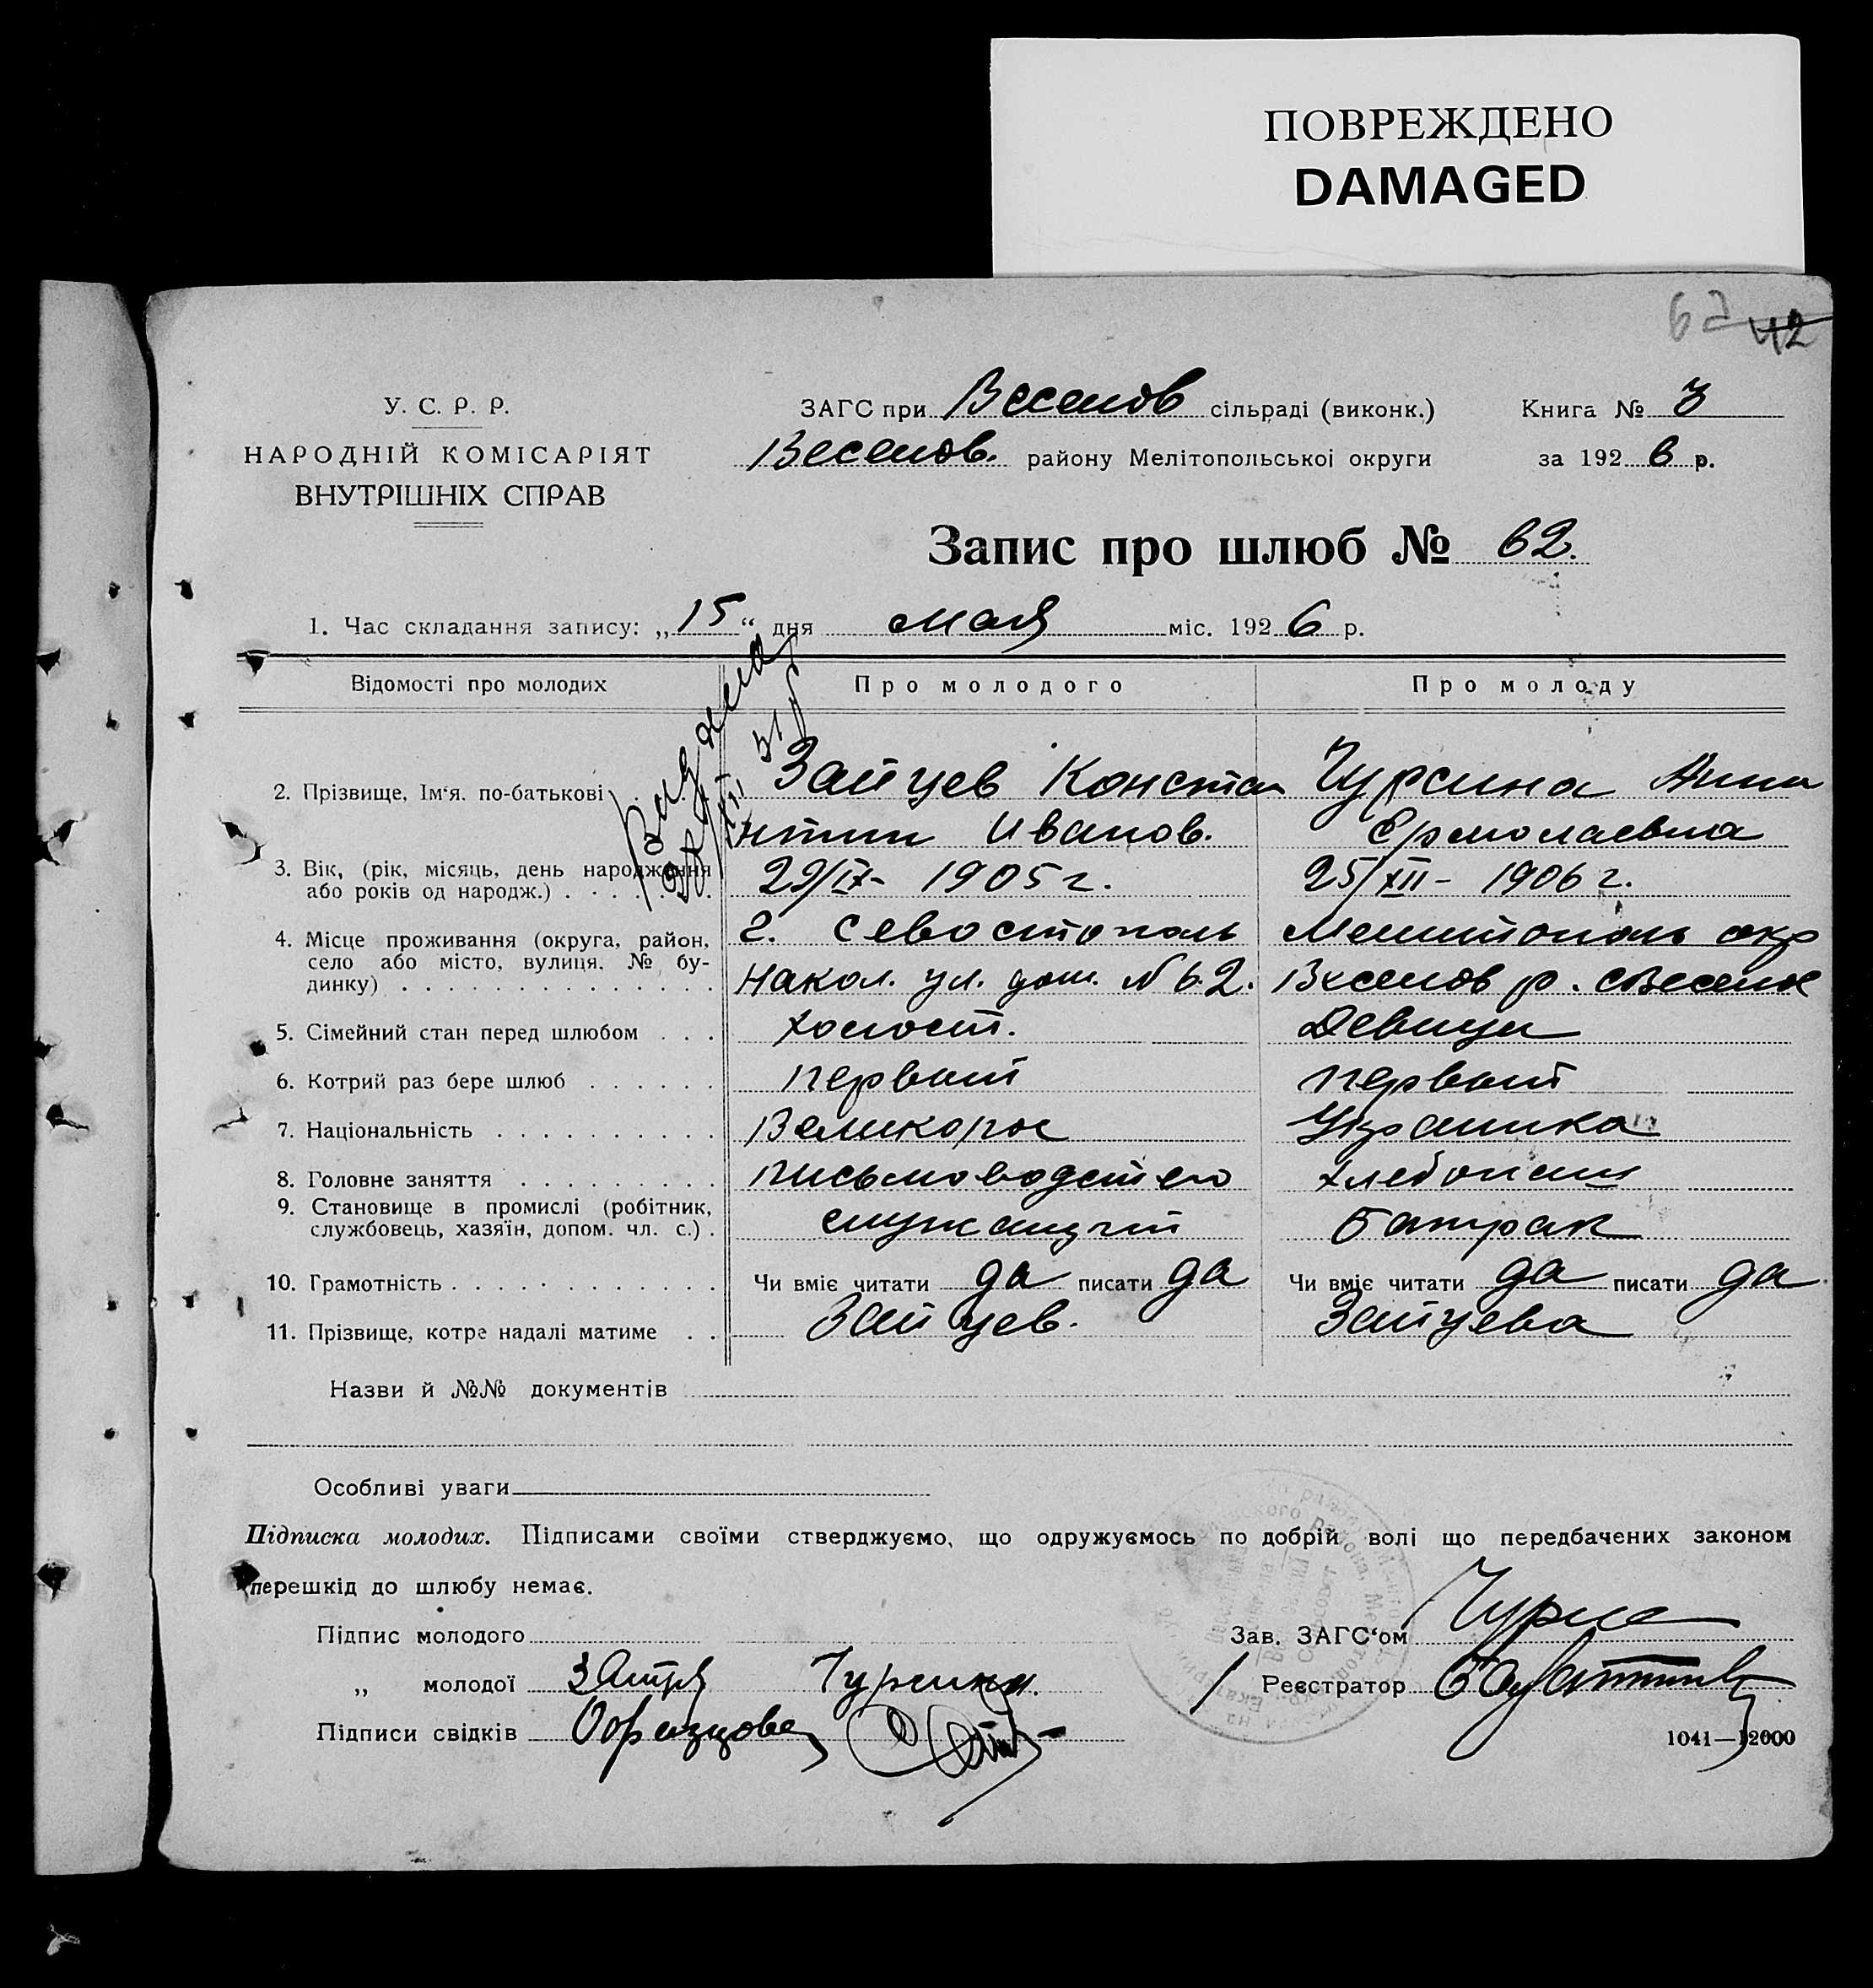 ПОВРЕЖДЕНО
DAMAGED
62 42
У. С. Р. Р.
НАРОДНІЙ КОМІСАРІЯТ
ВНУТРІШНІХ СПРАВ
ЗАГС при Веселов сільраді (виконк.) Книга № 3
Веселов. району Мелітопольської округи за 1926 р.
Запис про шлюб № 62.
1. Час складання запису: „15“ дня мая міс. 1926 р.
Відомості про молодих Про молодого Про молоду
2. Прізвище, Ім‘я. по-батькові Зайцев Констан Чурсина Анна
нтин Иванов. Ермолаевна
3. Вік, (рік, місяць, день народження 29/IX- 1905 г. 25/XII- 1906 г.
або років од народж.)
4. Місце проживання (округа, район, г. Севостополь Мелитополь окр
село або місто, вулиця. № бу- Накол. ул. дом. № 62. Веселов р. с Веселое
динку)
5. Сімейний стан перед шлюбом холост. Девица
6. Котрий раз бере шлюб первый первый
7. Національність Великорос Украинка
8. Головне заняття письмоводител хлебопаш
9. Становище в промислі (робітник, служащий батрак
службовець, хазяїн, допом. чл. с.)
10. Грамотність Чи вміє читати да писати да Чи вміє читати да писати да
11. Прізвище, котре надалі матиме Зайцев. Зайцева
Назви й №№ документів
Особливі уваги
Підписка молодих. Підписами своїми стверджуємо, що одружуємось по добрій волі що передбачених законом
перешкід до шлюбу немає.
Підпис молодого Зав. ЗАГС‘ом
„ молодої Чурсина. Реєстратор
Підписи свідків Образцова
1041—12000